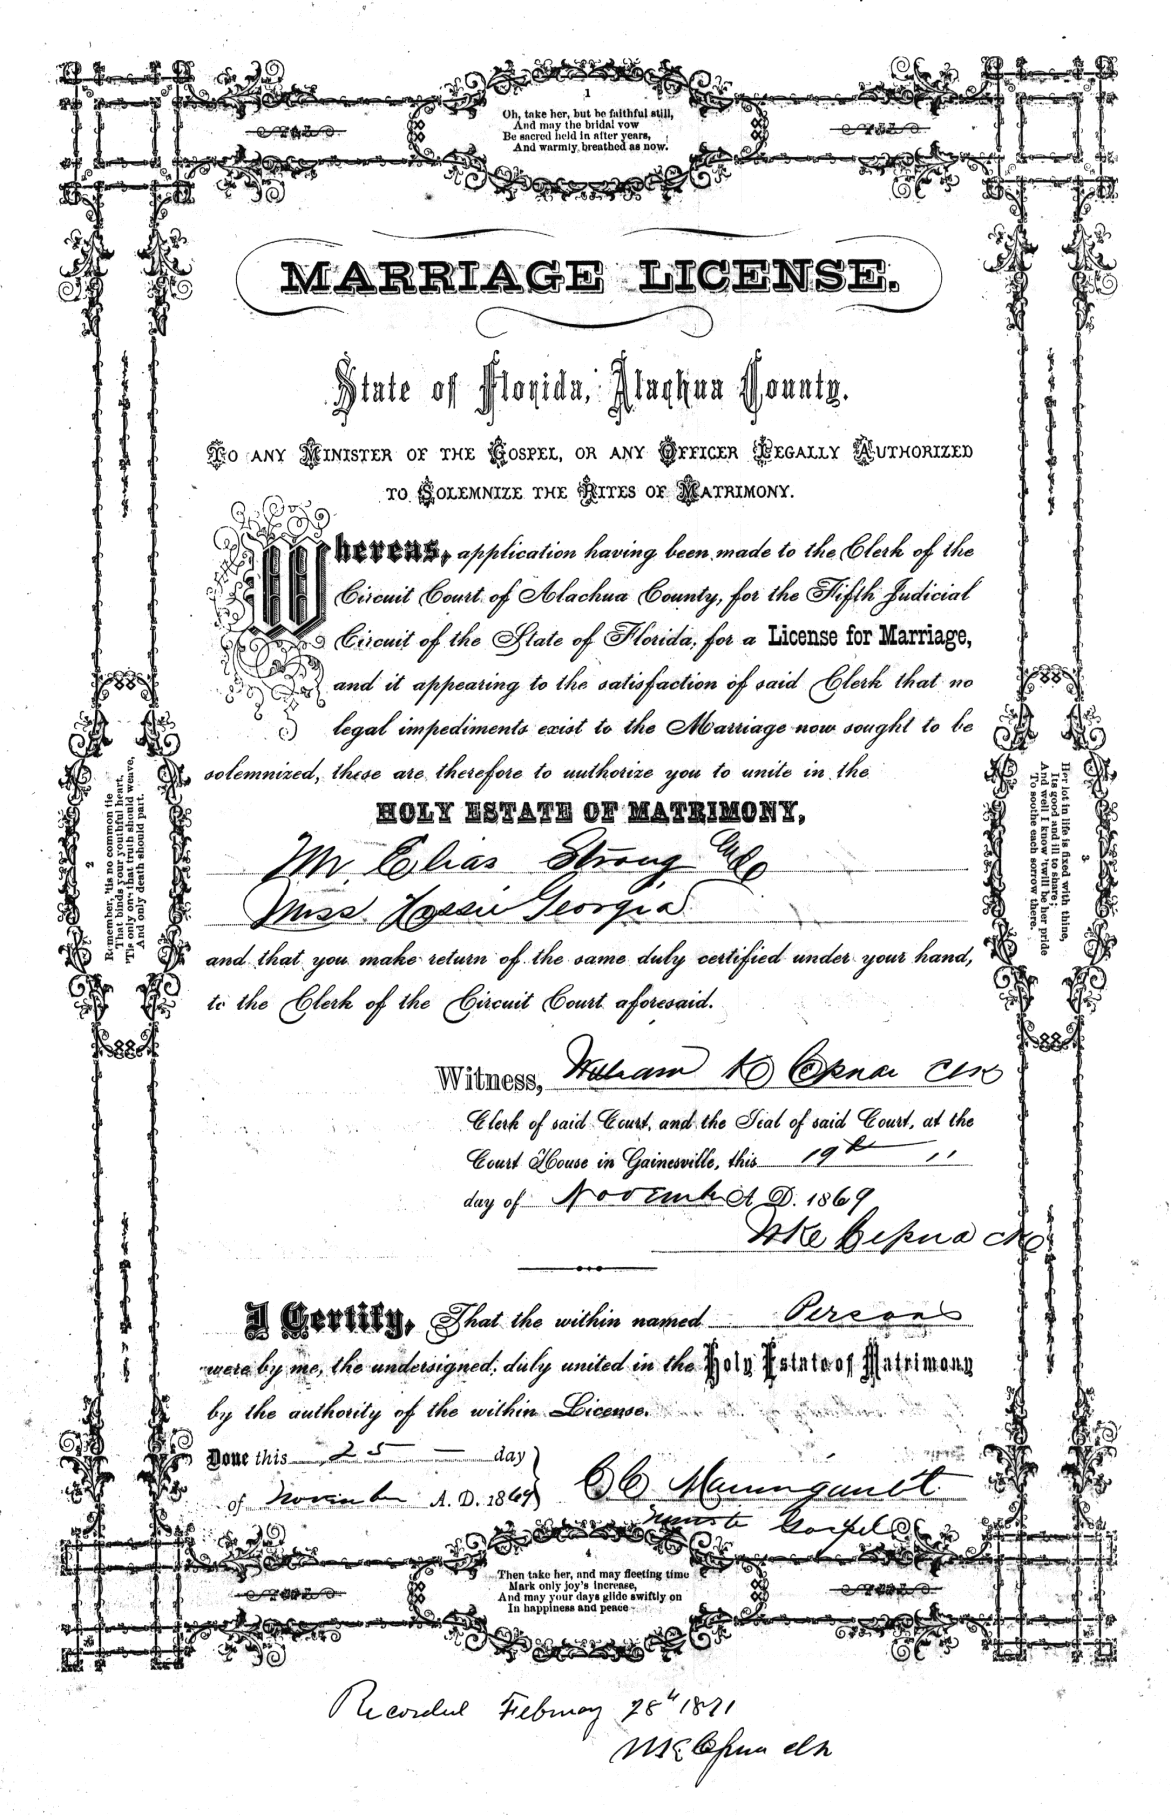 1
Oh, take her, but be faithful still,
And may the bridal vow
Be sacred held in after years,
And warmly breathed as now.
MARRIAGE LICENSE.
State of Florida, Alachua County.
TO ANY MINISTER OF THE GOSPEL, OR ANY OFFICER LEGALLY AUTHORIZED
TO SOLEMNIZE THE RITES OF MATRIMONY.
Whereas, application having been made to the Clerk of the
Circuit Court of Alachua County, for the Fifth Judicial
Circuit of the State of Florida, for a License for Marriage,
and it appearing to the satisfaction of said Clerk that no
legal impediments exist to the Marriage now sought to be
solemnized, these are therefore to authorize you to unite in the
HOLY ESTATE OF MATRIMONY,
Mr. Elias Strong
Miss Georgia
and that you make return of the same duly certified under your hand,
to the Clerk of the Circuit Court aforesaid.
Witness, William K Clk
Clerk of said Court, and the Seal of said Court, at the
Court House in Gainesville, this 19th
day of November A. D. 1869
Clk
I Certify, That the within named Persons
were by me, the undersigned, duly united in the Holy Estate of Matrimony
by the authority of the within License.
Done this 25 day
of November A. D. 1869
C C
Gospel
2
Remember, 'tis no common tie
That binds your youthful heart,
'Tis only one that truth should weave,
And only death should part.
3
Her lot in life is fixed with thine,
Its good and ill to share;
And well I know 'twill be her pride
To soothe each sorrow there.
4
Then take her, and may fleeting time
Mark only joy's increase,
And may your days glide swiftly on
In happiness and peace
Recorded February 28th 1871
clk